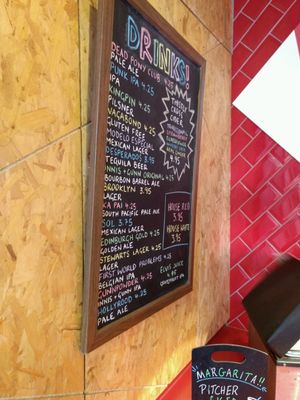 DRINKS!
DEAD PONY CLUB
PALE ALE
PUNK IPA 4.25
IPA
KINGPIN 4.25
PILSNER
VAGABOND 4.25
GLUTEN FREE
MODELO ESPECIAL
MEXICAN LAGER
DESPERADOS 3.95
TEQUILA BEER
INNIS + GUNN ORIGINAL 4.25
BOURBON BARREL ALE
BROOKLYN 3.95
LAGER
KA PAI 4.25
SOUTH PACIFIC PALE ALE
SOL 3.75
MEXICAN LAGER
EDINBURGH GOLD 4.25
GOLDEN ALE
STEWARTS LAGER 4.25
LAGER
FIRST WORLD PROBLEMS 4.25
BELGIAN IPA
GUNNPOWDER 4.25
INNIS + GUNN IPA
HOLLYROOD 4.25
PALE ALE
THISTLY
CROSS
CIDER
4.95
HOUSE RED
3.95
HOUSE WHITE
3.95
ELVIS JUICE
4.25
GRAPEFRUIT IPA
MARGARITA!!
PITCHER